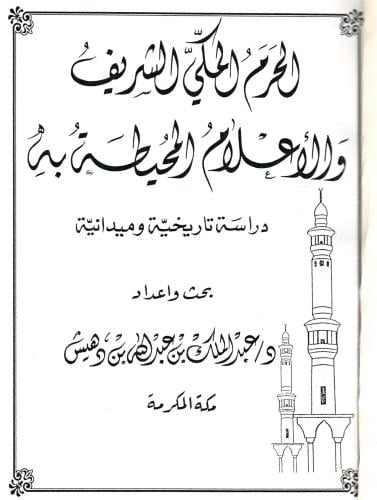 الحَرَمُ المكيُّ الشريف
وَالأعْلامُ المحُيطَةُ بهِ
دراسة تاريخية وميدانية
بحث واعداد
د/عبد الملك بن عبد الله بن دهيش
مكة المكرمة